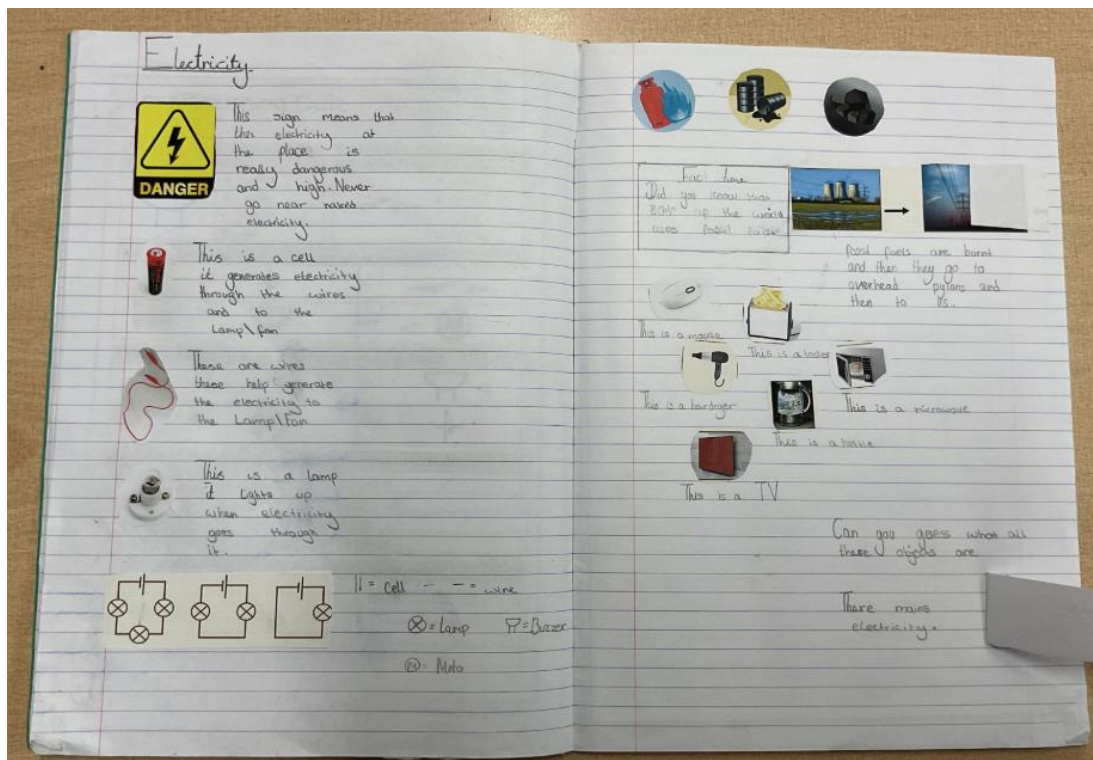 Electricity.
This sign means that
the electricity at
the place is
really dangerous
and high. Never
go near naked
electricity.
DANGER
This is a cell
it generates electricity
through the wires
and to the
Lamp\fan
These are wires
these help generate
the electricity to
the Lamp\Fan
This is a lamp
it lights up
when electricity
goes through
it.
= cell
= wire
= Lamp
= Buzzer
M = Moto
Fact time
Did you know than
80% of the world
uses fossil
fossil fuels are burnt
and then they go to
overhead pylons and
then to us.
This is a mouse
This is a toster
This is a hairdryer
This is a microwave
This is a kettle
This is a TV
Can you guess what all
these objects are
There mains
electricity.